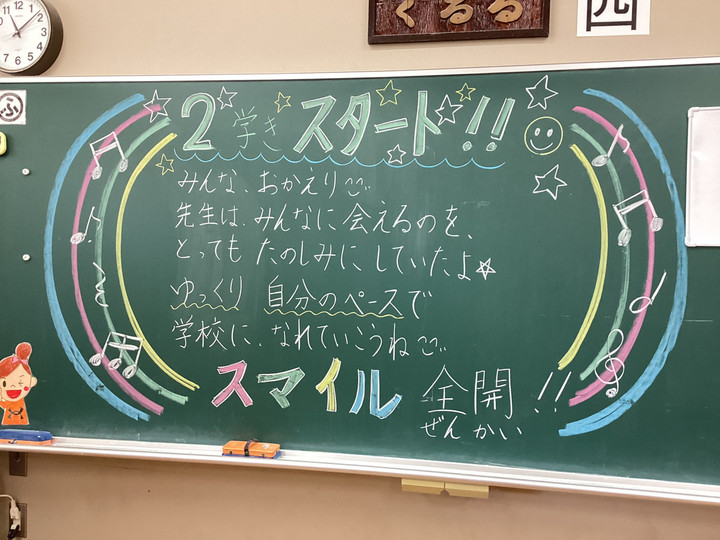 くるる
西
ふ
2学きスタート!!
みんな、おかえり
先生は、みんなに会えるのを、
とってもたのしみにしていたよ☆
ゆっくり 自分のペースで
学校に、なれていこうね
スマイル 全開!!
ぜんかい